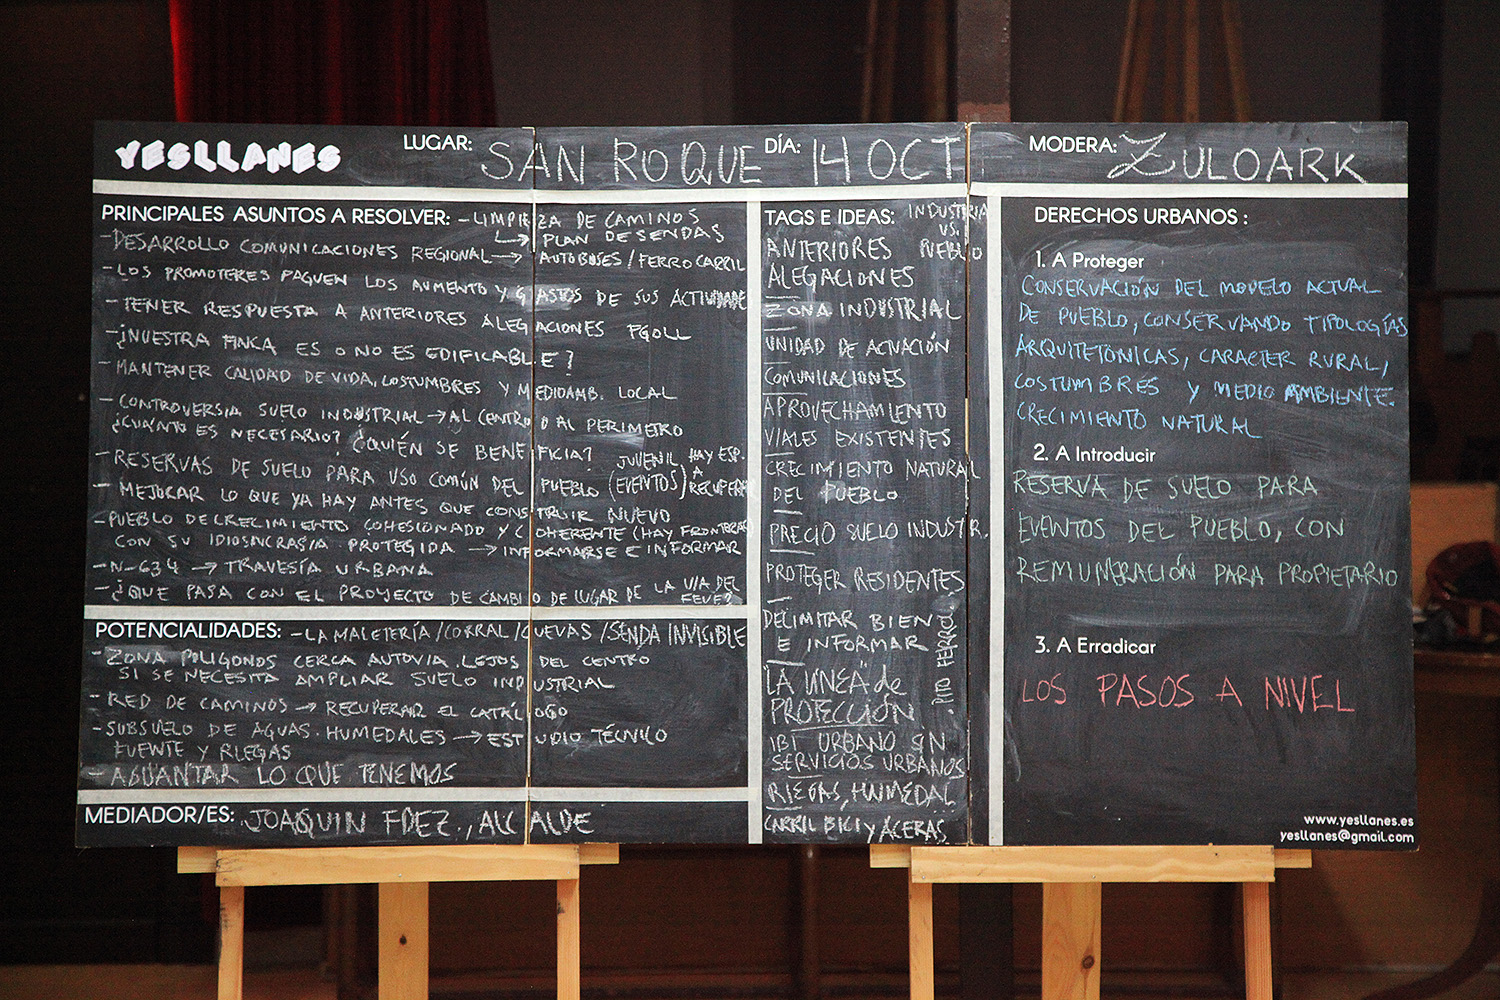 YESLLANES
LUGAR: SAN ROQUE
DÍA: 14 OCT
MODERA: ZULOARK
PRINCIPALES ASUNTOS A RESOLVER: - LIMPIEZA DE CAMINOS
↳ PLAN DE SENDAS
- DESARROLLO COMUNICACIONES REGIONAL → AUTOBUSES / FERROCARRIL
- LOS PROMOTERES PAGUEN LOS AUMENTO Y GASTOS DE SUS ACTIVIDADE
- TENER RESPUESTA A ANTERIORES ALEGACIONES PGOLL
- ¿NUESTRA FINCA ES O NO ES EDIFICABLE?
- MANTENER CALIDAD DE VIDA, COSTUMBRES Y MEDIOAMB. LOCAL
- CONTROVERSIA SUELO INDUSTRIAL → AL CENTRO O AL PERIMETRO
¿CUÁNTO ES NECESARIO? ¿QUIÉN SE BENEFICIA?
- RESERVAS DE SUELO PARA USO COMÚN DEL PUEBLO (JUVENIL EVENTOS) HAY ESP. A RECUPERAR
- MEJORAR LO QUE YA HAY ANTES QUE CONSTRUIR NUEVO
- PUEBLO DE CRECIMIENTO COHESIONADO Y COHERENTE (HAY FRONTERAS)
CON SU IDIOSINCRASIA PROTEGIDA → INFORMARSE E INFORMAR
- N-634 → TRAVESÍA URBANA
- ¿QUE PASA CON EL PROYECTO DE CAMBIO DE LUGAR DE LA VIA DEL FEVE?
POTENCIALIDADES: - LA MALETERÍA / CORRAL / CUEVAS / SENDA INVISIBLE
- ZONA POLIGONOS CERCA AUTOVIA. LEJOS DEL CENTRO
SI SE NECESITA AMPLIAR SUELO INDUSTRIAL
- RED DE CAMINOS → RECUPERAR EL CATÁLOGO
- SUBSUELO DE AGUAS. HUMEDALES → ESTUDIO TÉCNICO
FUENTE Y RIEGAS
- AGUANTAR LO QUE TENEMOS
MEDIADOR/ES: JOAQUIN FDEZ., ALCALDE
TAGS E IDEAS: INDUSTRIA
VS.
PUEBLO
ANTERIORES
ALEGACIONES
ZONA INDUSTRIAL
UNIDAD DE ACTUACIÓN
COMUNICACIONES
APROVECHAMIENTO
VIALES EXISTENTES
CRECIMIENTO NATURAL
DEL PUEBLO
PRECIO SUELO INDUSTR.
PROTEGER RESIDENTES
DELIMITAR BIEN
E INFORMAR
LA LINEA de
PROTECCIÓN
IBI URBANO SIN
SERVICIOS URBANOS
RIEGAS, HUMEDAL
CARRIL BICI Y ACERAS
DERECHOS URBANOS :
1. A Proteger
CONSERVACIÓN DEL MODELO ACTUAL
DE PUEBLO, CONSERVANDO TIPOLOGÍAS
ARQUITETÓNICAS, CARACTER RURAL,
COSTUMBRES Y MEDIO AMBIENTE.
CRECIMIENTO NATURAL
2. A Introducir
RESERVA DE SUELO PARA
EVENTOS DEL PUEBLO, CON
REMUNERACIÓN PARA PROPIETARIO
3. A Erradicar
LOS PASOS A NIVEL
www.yesllanes.es
yesllanes@gmail.com